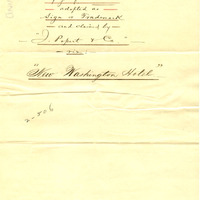 adopted as
Sign or Trademark
and claimed by
"J. Popert & Co."
viz:
"New Washington Hotel"
2-506